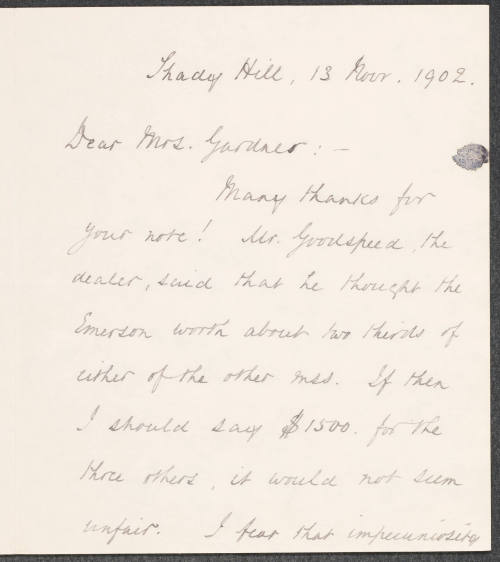 Shady Hill, 13 Novr. 1902.
Dear Mrs. Gardner: –
Many thanks for
your note! Mr. Goodspeed, the
dealer, said that he thought the
Emerson worth about two thirds of
either of the other mss. If then
I should say $1500. for the
three others, it would not seem
unfair. I fear that impecuniosity